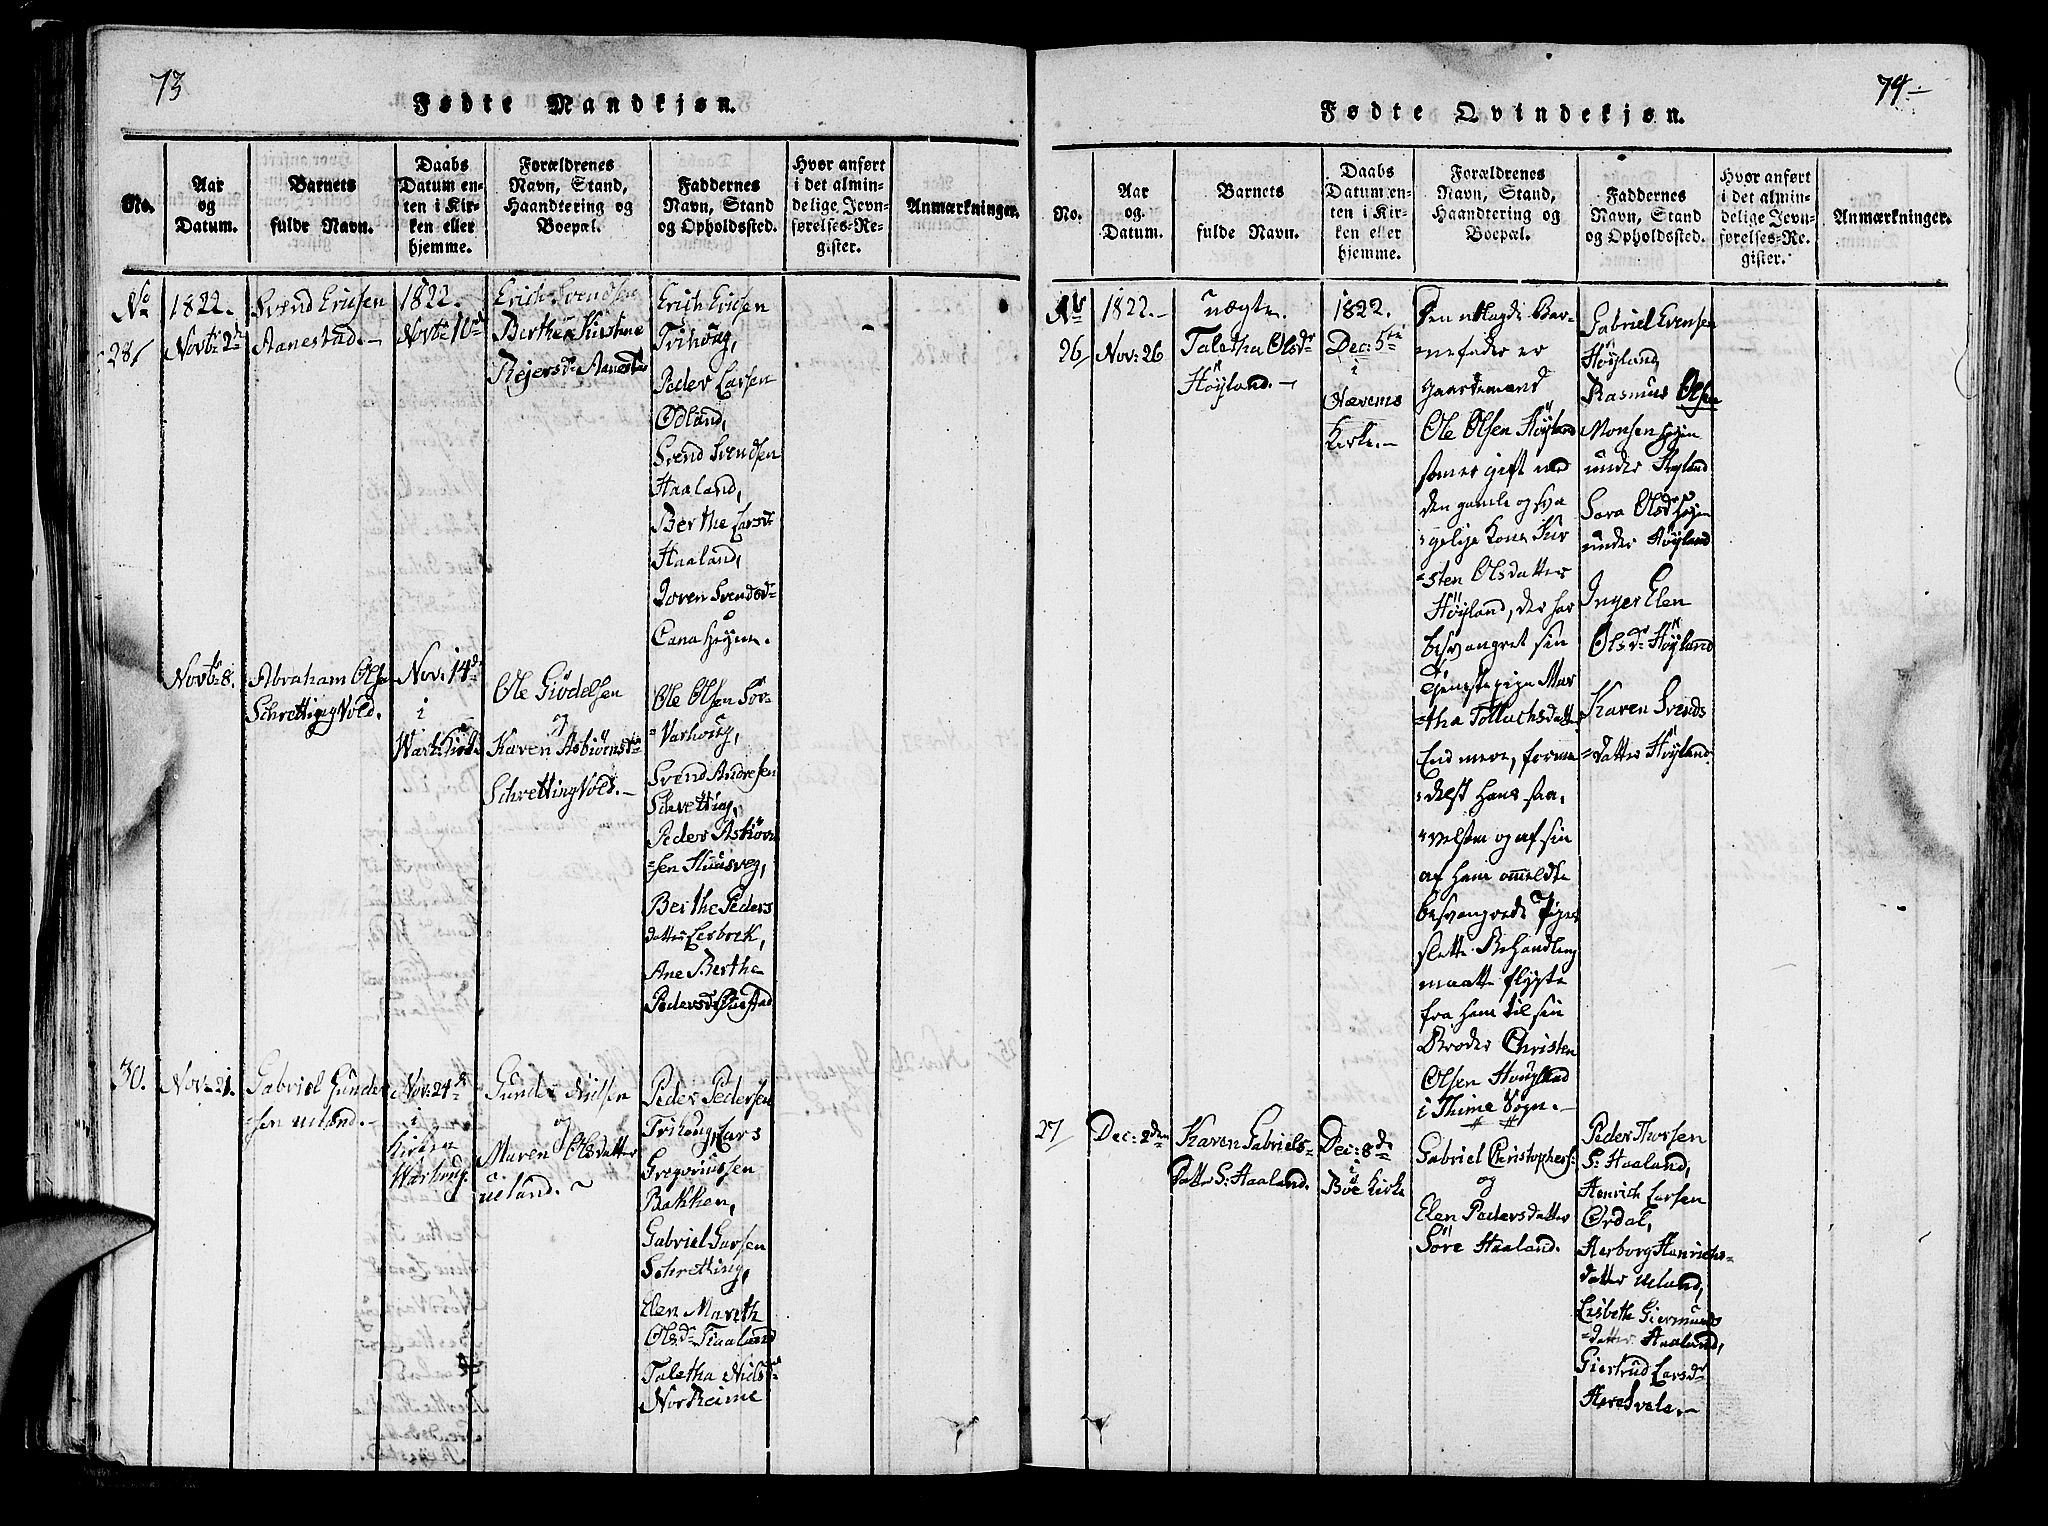 73
Fødte Mandkjøn.
No.
Aar
og
Datum.
Barnets
fulde Navn.
Daabs
Datum en-
ten i Kir-
ken eller
hjemme.
Forældrenes
Navn, Stand,
Haandtering og
Boepæl.
Faddernes
Navn, Stand
og Opholdssted.
Hvor anført
i det almin-
delige Jevn-
førelses-Re-
gister.
Anmærkninger.
No
28
1822.
Novbr 2d
Svend Erichsen
Aanestad.
1822.
Novbr 10d
Erich Svendsen
Berthe Kirstine
Rejersdr Aanestad
Erich Ericsen
Trihoug,
Peder Larsen
Ødland,
Svend Svendsen
Haaland,
Berthe Larsdr
Haaland,
Joren Svendsdr
Cana hejme.
Novbr 8.
Abraham Olsen
SchrettingVold.
Nov. 14d
i
Warh: Kirke
Ole Giødelsen
og
Karen Asbiørnsdr
SchrettingVold.
Ole Olsen Sør-
=Varhoug,
Svend Andresen
Schretting,
Peder Asbiørn
=sen Huusveg,
Berthe Peders
datter Lesbrek,
Ane Berthe
Pedersdr
30.
Nov: 21.
Gabriel Gunder
=sen Ueland.
Nov: 24d
i
Kirken
Warhoug.
Gunder Nilsen
og
Maren Olsdatter
Ueland.
Peder Pedersen
Trihoug, Lars
Gregoriussen
Bakken,
Gabriel Larsen
Schretting,
Elen Mareth
Olsdr Haaland
Taletha Nilsdr
Norheime
74
Fødte Qvindekjøn.
No.
Aar
og
Datum.
Barnets
fulde Navn.
Daabs
Datum en-
ten i Kir-
ken eller
hjemme.
Forældrenes
Navn, Stand,
Haandtering og
Boepæl.
Faddernes
Navn, Stand
og Opholdssted.
Hvor anført
i det almin-
delige Jevn-
førelses-Re-
gister.
Anmærkninger.
No
26
1822.
Nov: 26
uægte.
Taletha Olsdr
Høyland.
1822.
Dec: 5te
i
Nærems
Kirke.
Den udlagde Bar-
nefader er
Gaardemand
Ole Olsen Høyland
som er gift med
den gamle og sva
=gelige Kone Kir
=sten Olsdatter
Høyland, der har
besvangret sin
Tjenestepige Mar
=tha Tollachsdatter
End mere, forme
=delst hans
og af sin
af ham ommeldte
besvangrede Piges
slette Behandling
maatte flygte
fra ham til sin
Broder Christen
Olsen Høyland
i Thime Sogn.
Gabriel Evensen
Høyland,
Rasmus Olsen
Monsen hejm
under Høyland
Sara Olsdr hejm
under Høyland
Inger Elen
Olsdr Høyland
Karen Svends
=datter Høyland.
27
Dec: 2den
Karen Gabriels-
datter S: Haaland.
Dec: 8de
i
Bøe Kirke
Gabriel Christophers:
og
Elen Pedersdatter
Søre Haaland.
Peder Thorsen
S: Haaland,
Henrich Larsen
Ørdal,
Herborg Henrichs-
datter Ueland,
Lisbeth Giermunds
=datter Haaland,
Giertrud Larsdr
Heresvela.